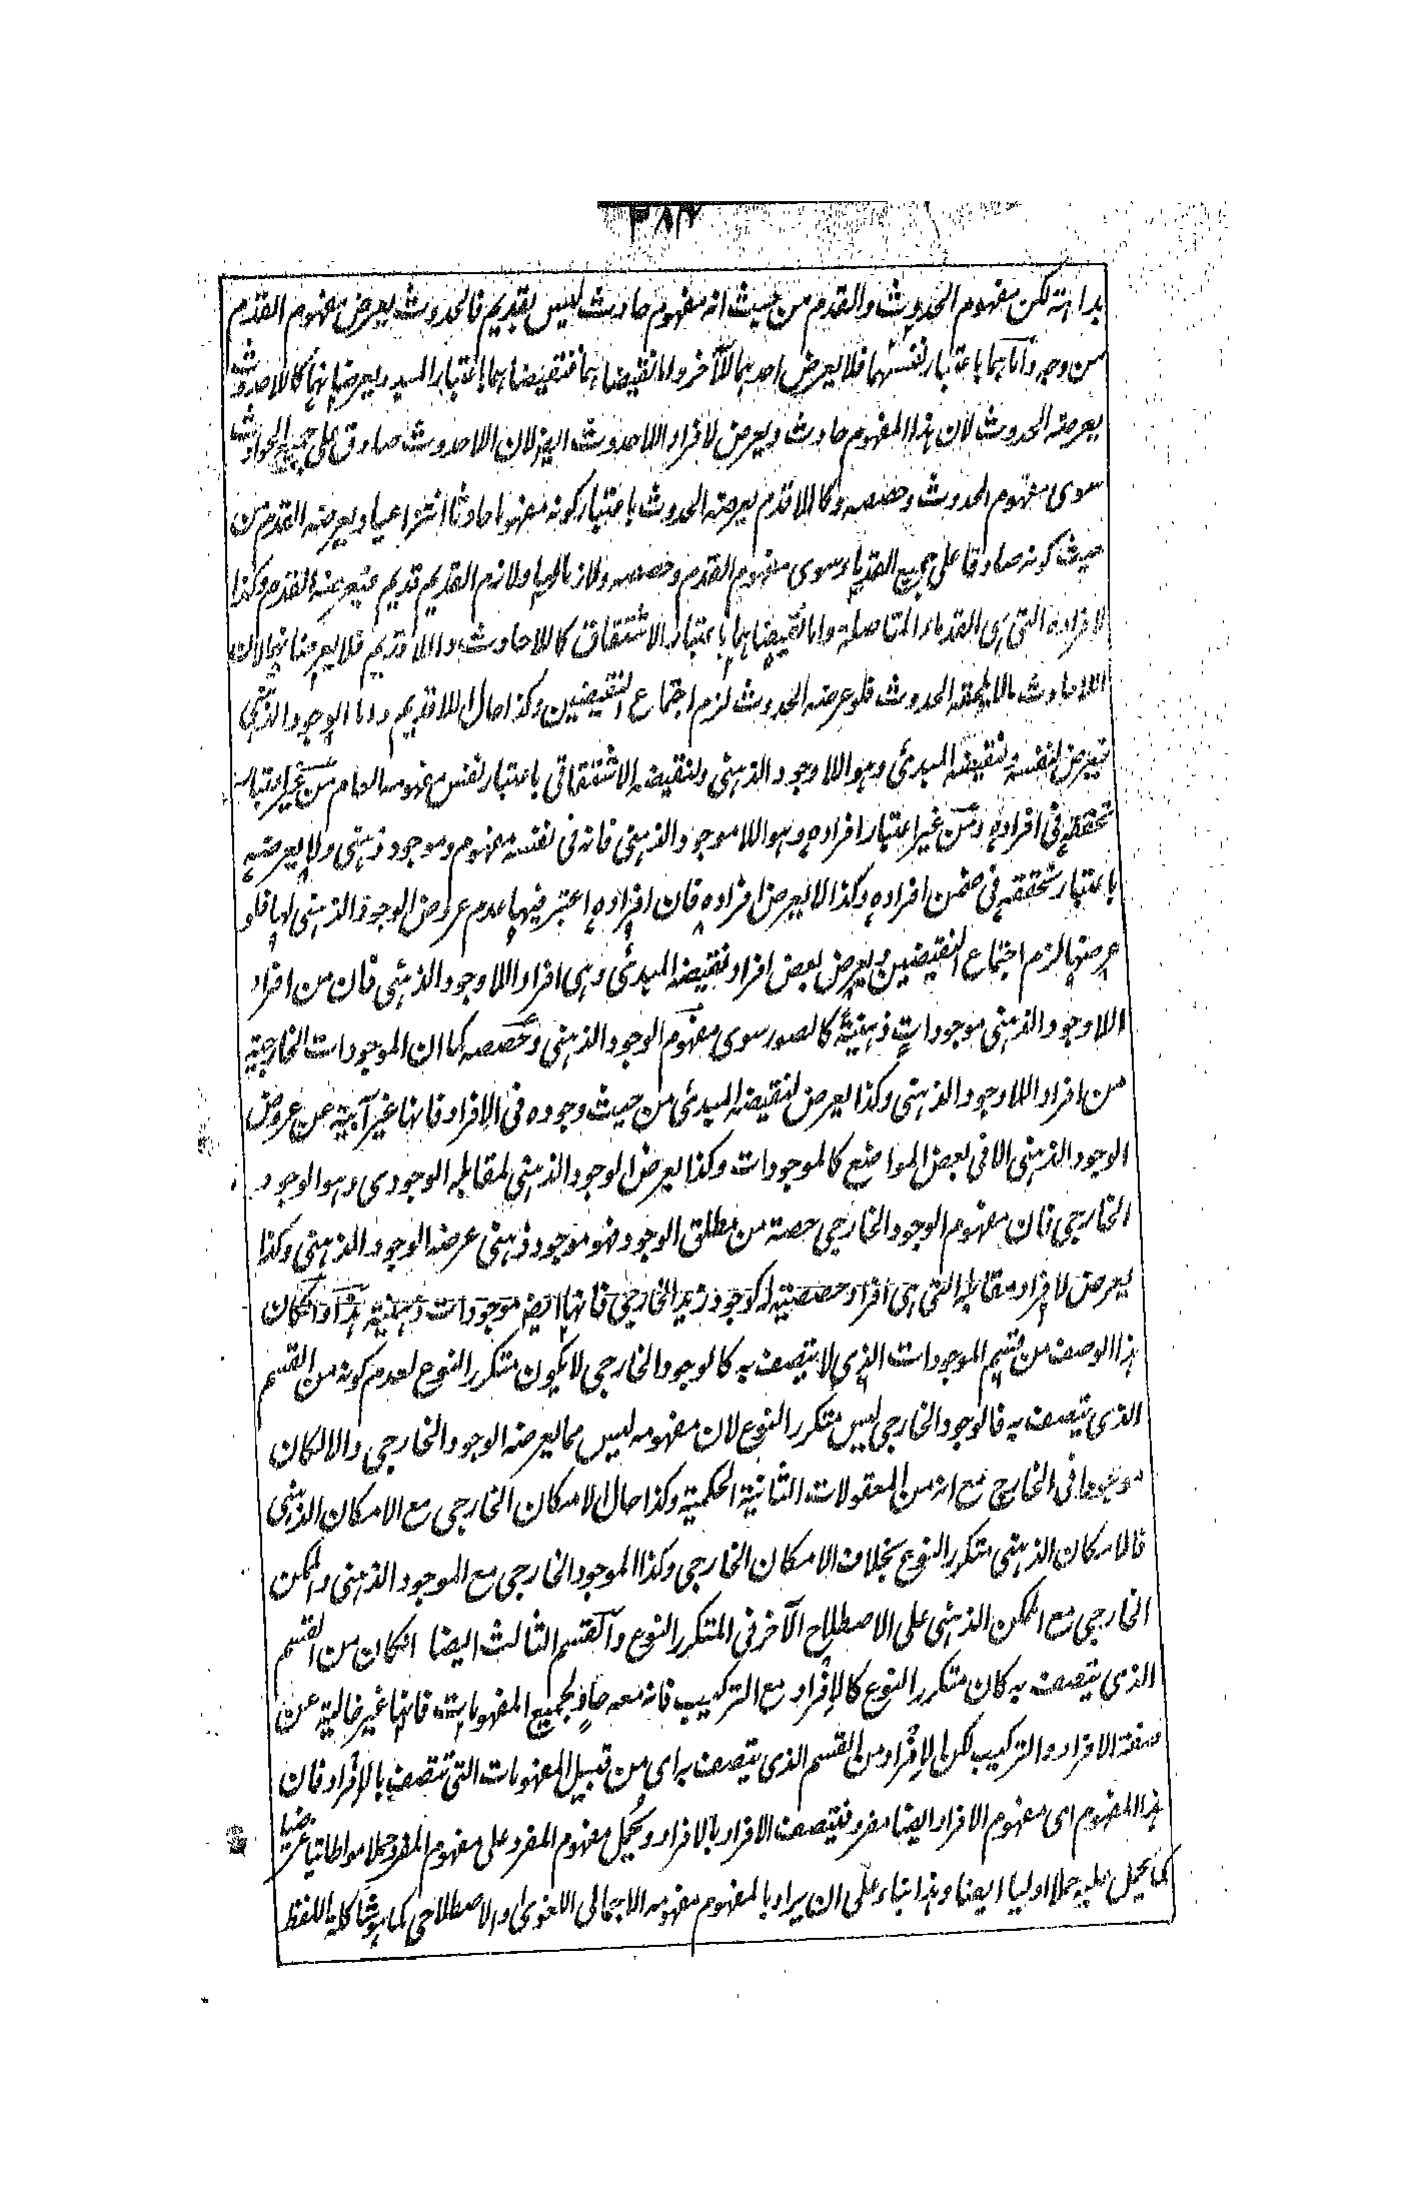 ٣٨٧
بداهة لكن مفهوم الحدوث والقدم من حيث انه مفهوم حادث ليس بقديم فالحدوث يعرض مفهوم القدم
من وجه واما هما باعتبار نفسهما فلا يعرض احدهما للآخر واما نقيضاهما فنقيضاهما باعتبار المبدء يعرضانهما كاللاحدوث
يعرضه الحدوث لان هذا المفهوم حادث ويعرض لافراد اللاحدوث ايضا لان اللاحدوث صادق على جميع الحوادث
سوى مفهوم الحدوث وحصصه وكاللاقدم يعرضه الحدوث باعتبار كونه مفهوما حادثا انتزاعيا ويعرضه القدم من
حيث كونه صادقا على جميع القدماء سوى مفهوم القدم وحصصه ولازما لها ولازم القديم قديم فيعرضه القدم وكذا
لافراده التى هى القدماء المتاصلة واما نقيضاهما باعتبار الاشتقاق كاللاحادث واللاقديم فلا يعرضانهما لان
اللاحادث مالا يلحقه الحدوث فلو عرضه الحدوث لزم اجتماع النقيضين وكذا حال اللاقديم واما الوجود الذهنى
فيعرض لنفسه ولنقيضه المبدئى وهو اللاوجود الذهنى ولنقيضه الاشتقاقى باعتبار نفس مفهومه العام من غير اعتبار
تحققه فى افراده ومن غير اعتبار افراده وهو اللاموجود الذهنى فانه فى نفسه مفهوم وموجود ذهنى ولا يعرضه
باعتبار تحققه فى ضمن افراده وكذا لا يعرض افراده فان افراده اعتبر فيها عدم عروض الوجود الذهنى لها فلو
عرضها لزم اجتماع النقيضين ويعرض بعض افراد نقيضه المبدئى وهى افراد اللاوجود الذهنى فان من افراد
اللاوجود الذهنى موجودات ذهنية كالصور سوى مفهوم الوجود الذهنى وحصصه كما ان الموجودات الخارجية
من افراد اللاوجود الذهنى وكذا يعرض لنقيضه المبدئى من حيث وجوده فى الافراد فانها غير آبية عن عروض
الوجود الذهنى الا فى بعض المواضع كالموجودات وكذا يعرض الوجود الذهنى لمقابله الوجودى وهو الوجود
الخارجى فان مفهوم الوجود الخارجى حصة من مطلق الوجود فهو موجود ذهنى عرضه الوجود الذهنى وكذا
يعرض لافراد مقابله التى هى افراد حصصية له كوجود زيد الخارجى فانها ايضا موجودات ذهنية هذا وان كان
هذا الوصف من قسم الموجودات الذى لا يتصف به كالوجود الخارجى لا يكون متكرر النوع لعدم كونه من القسم
الذى يتصف به فالوجود الخارجى ليس متكرر النوع لان مفهومه ليس مما يعرضه الوجود الخارجى والا لكان
موجودا فى الخارج مع انه من المعقولات الثانية الحكمية وكذا حال الامكان الخارجى مع الامكان الذهنى
فالامكان الذهنى متكرر النوع بخلاف الامكان الخارجى وكذا الموجود الخارجى مع الموجود الذهنى والممكن
الخارجى مع الممكن الذهنى على الاصطلاح الآخر فى المتكرر النوع والقسم الثالث ايضا ان كان من القسم
الذى يتصف به كان متكرر النوع كالافراد مع التركيب فانه معه حاو لجميع المفهومات فانها غير خالية عن
صفة الافراد والتركيب لكن الافراد من القسم الذى يتصف به اى من قبيل المفهومات التى تتصف بالافراد فان
هذا المفهوم اى مفهوم الافراد ايضا مفرد فيتصف الافراد بالافراد ويحمل مفهوم المفرد على مفهوم المفرد حملا مواطاتيا عرضيا
كما يحمل عليه حملا اوليا ايضا وهذا بناء على ان يراد بالمفهوم مفهومه الاجمالى اللغوى والاصطلاحى كما هو شاكلة اللفظ